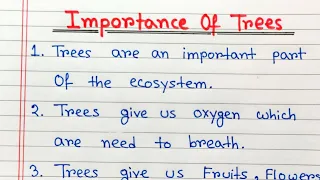 Importance Of Trees
1. Trees are an important part
Of the ecosystem.
2. Trees give us oxygen which
are need to breath.
3. Trees give us Fruits, Flowers